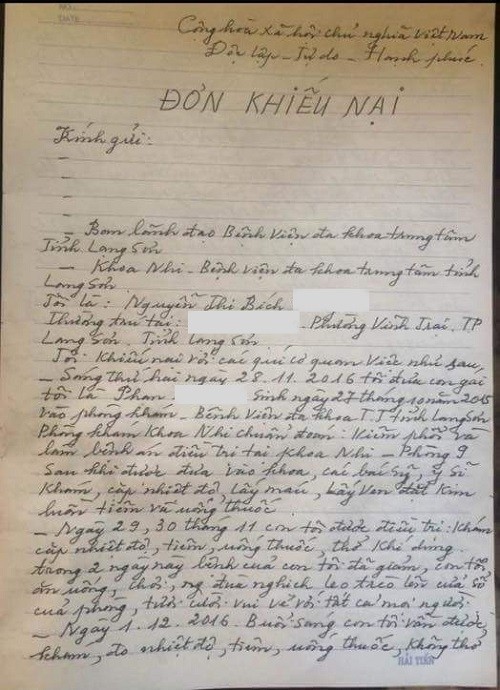 Cộng hòa xã hội chủ nghĩa Việt Nam
Độc lập - Tự do - Hạnh phúc.
ĐƠN KHIẾU NẠI
Kính gửi:
-
-
-
-
- Ban lãnh đạo Bệnh Viện đa khoa trung tâm
Tỉnh Lạng Sơn
- Khoa Nhi - Bệnh viện đa khoa trung tâm tỉnh
Lạng Sơn
Tôi là: Nguyễn Thị Bích
Thường trú tại: - Phường Vĩnh Trại, TP
Lạng Sơn, Tỉnh Lạng Sơn
Tôi khiếu nại với các quí cơ quan việc như sau,
- Sáng thứ hai ngày 28.11.2016 tôi đưa con gái
tôi là Phan Sinh ngày 27 tháng 10 năm 2015
vào phòng khám - Bệnh Viện đa khoa T.T tỉnh Lạng Sơn
Phòng khám Khoa Nhi chuẩn đoán: Viêm phổi và
làm bệnh án điều trị tại Khoa Nhi - Phòng 9
Sau khi được đưa vào khoa, các bác sỹ, y sĩ
Khám, cặp nhiệt độ, lấy máu, lấy ven đặt kim
luồn tiêm và uống thuốc.
- Ngày 29, 30 tháng 11 con tôi được điều trị: Khám
cặp nhiệt độ, tiêm, uống thuốc, thở khí dung
trong 2 ngày này bệnh của con tôi đã giảm, con tôi
ăn uống, chơi, đùa nghịch leo trèo lên cửa sổ
của phòng, tươi cười vui vẻ với tất cả mọi người.
- Ngày 1.12.2016. Buổi sáng con tôi vẫn được
khám, đo nhiệt độ, tiêm, uống thuốc, không thở
HẢI TIẾN